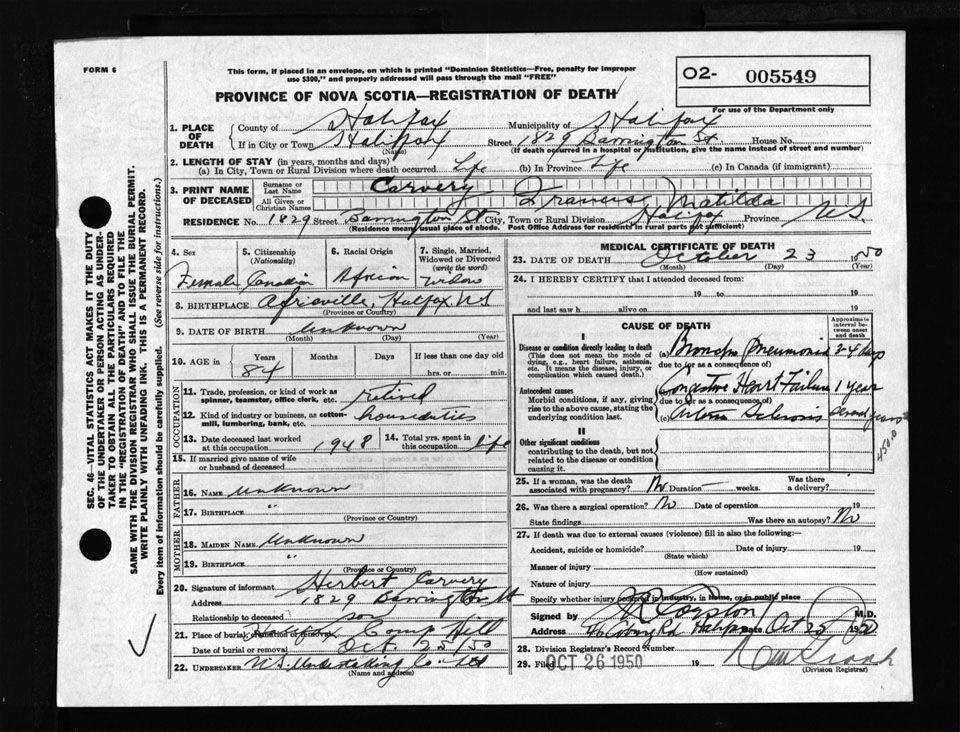 FORM 6
This form, if placed in an envelope, on which is printed "Dominion Statistics—Free, penalty for improper
use $300," and properly addressed will pass through the mail "FREE"
O2- 005549
For use of the Department only
PROVINCE OF NOVA SCOTIA—REGISTRATION OF DEATH
1. PLACE OF DEATH
County of Halifax Municipality of Halifax
If in City or Town Halifax Street 1829 Barrington St House No.
(Name) (If death occurred in a hospital or institution, give the name instead of street and number)
2. LENGTH OF STAY (in years, months and days)
(a) In City, Town or Rural Division where death occurred Life (b) In Province Life (c) In Canada (if immigrant)
3. PRINT NAME OF DECEASED
Surname or Last Name Carvery
All Given or Christian Names Francis Matilda
RESIDENCE No. 1829 Street Barrington St City, Town or Rural Division Halifax Province N.S.
(Residence means usual place of abode. Post Office Address for residents in rural parts not sufficient)
4. Sex Female
5. Citizenship (Nationality) Canadian
6. Racial Origin African
7. Single, Married, Widowed or Divorced (write the word) widow
8. BIRTHPLACE Africville, Halifax, N.S
(Province or Country)
9. DATE OF BIRTH Unknown
(Month) (Day) (Year)
10. AGE in Years Months Days If less than one day old
84 hrs. or min.
OCCUPATION
11. Trade, profession, or kind of work as spinner, teamster, office clerk, etc. Retired
12. Kind of industry or business, as cotton-mill, lumbering, bank, etc. house duties
13. Date deceased last worked at this occupation 1948
14. Total yrs. spent in this occupation life
15. If married give name of wife or husband of deceased
FATHER
16. NAME Unknown
17. BIRTHPLACE "
(Province or Country)
MOTHER
18. MAIDEN NAME Unknown
19. BIRTHPLACE "
(Province or Country)
20. Signature of informant Herbert Carvery
Address 1829 Barrington St
Relationship to deceased son
21. Place of burial, cremation or removal Camp Hill
Date of burial or removal Oct. 25/50
22. UNDERTAKER N.S. Undertaking Co. Ltd
(Name and address)
MEDICAL CERTIFICATE OF DEATH
23. DATE OF DEATH October 23 1950
(Month) (Day) (Year)
24. I HEREBY CERTIFY that I attended deceased from:
19 to 19
and last saw h alive on 19
CAUSE OF DEATH
Approximate interval between onset and death
I
Disease or condition directly leading to death
(This does not mean the mode of dying, e.g., heart failure, asthenia, etc. It means the disease, injury, or complication which caused death.)
(a) Broncho Pneumonia 2-4 days
due to (or as a consequence of)
Antecedent causes
Morbid conditions, if any, giving rise to the above cause, stating the underlying condition last.
(b) Congestive Heart Failure 1 year
due to (or as a consequence of)
(c) Arterio Sclerosis several years
II
Other significant conditions
contributing to the death, but not related to the disease or condition causing it.
450.0
25. If a woman, was the death associated with pregnancy? No Duration weeks. Was there a delivery?
26. Was there a surgical operation? No Date of operation 19
State findings Was there an autopsy? No
27. If death was due to external causes (violence) fill in also the following:—
Accident, suicide or homicide? Date of injury 19
(State which)
Manner of injury
(How sustained)
Nature of injury
Specify whether injury occurred in industry, in home, or in public place
Signed by M.D.
Address Rd Halifax Date Oct 25 1950
28. Division Registrar's Record Number
29. Filed OCT 26 1950 19
(Division Registrar)
SEC. 46—VITAL STATISTICS ACT MAKES IT THE DUTY
OF THE UNDERTAKER OR PERSON ACTING AS UNDERTAKER
TO OBTAIN ALL THE PARTICULARS REQUIRED
IN THE "REGISTRATION OF DEATH" AND TO FILE THE
SAME WITH THE DIVISION REGISTRAR WHO SHALL ISSUE THE BURIAL PERMIT.
WRITE PLAINLY WITH UNFADING INK. THIS IS A PERMANENT RECORD.
Every item of information should be carefully supplied. (See reverse side for instructions.)